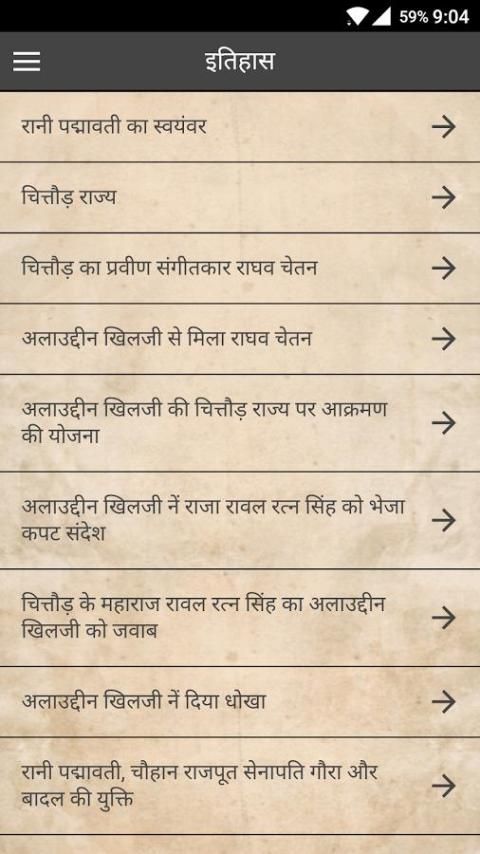 59% 9:04
इतिहास
रानी पद्मावती का स्वयंवर
चित्तौड़ राज्य
चित्तौड़ का प्रवीण संगीतकार राघव चेतन
अलाउद्दीन खिलजी से मिला राघव चेतन
अलाउद्दीन खिलजी की चित्तौड़ राज्य पर आक्रमण
की योजना
अलाउद्दीन खिलजी नें राजा रावल रत्न सिंह को भेजा
कपट संदेश
चित्तौड़ के महाराज रावल रत्न सिंह का अलाउद्दीन
खिलजी को जवाब
अलाउद्दीन खिलजी नें दिया धोखा
रानी पद्मावती, चौहान राजपूत सेनापति गौरा और
बादल की युक्ति